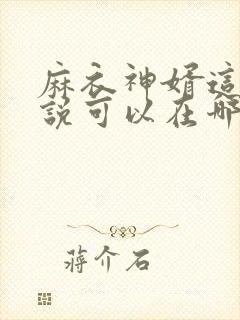 麻衣神婿這
說可以在哪
蔣介石